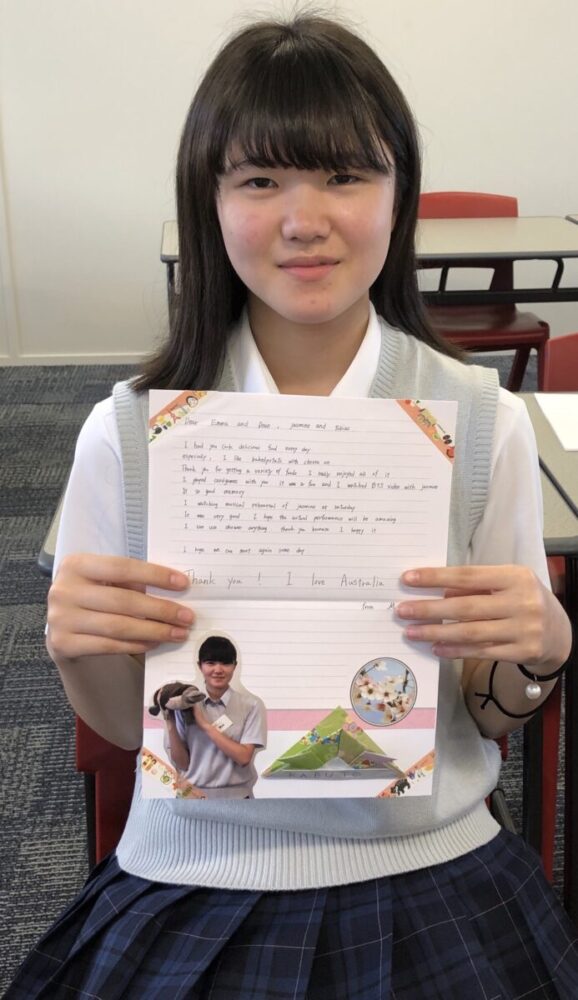 Dear Emma and Dave, Jasmine and Tobias
I had you cook delicious food every day
especially, I like bakedpotato with cheese
Thank you for getting a variety of foods I really enjoyed all of it
I played cardgames with you It was so fun and I watched BTS video with Jasmine
It so good memory
I watching musical rehearsal of Jasmine on saturday
It was very good I hope the actual performance will be amazing
I hope we can meet again some day
Thank you! I love Australia
from
KABUTO